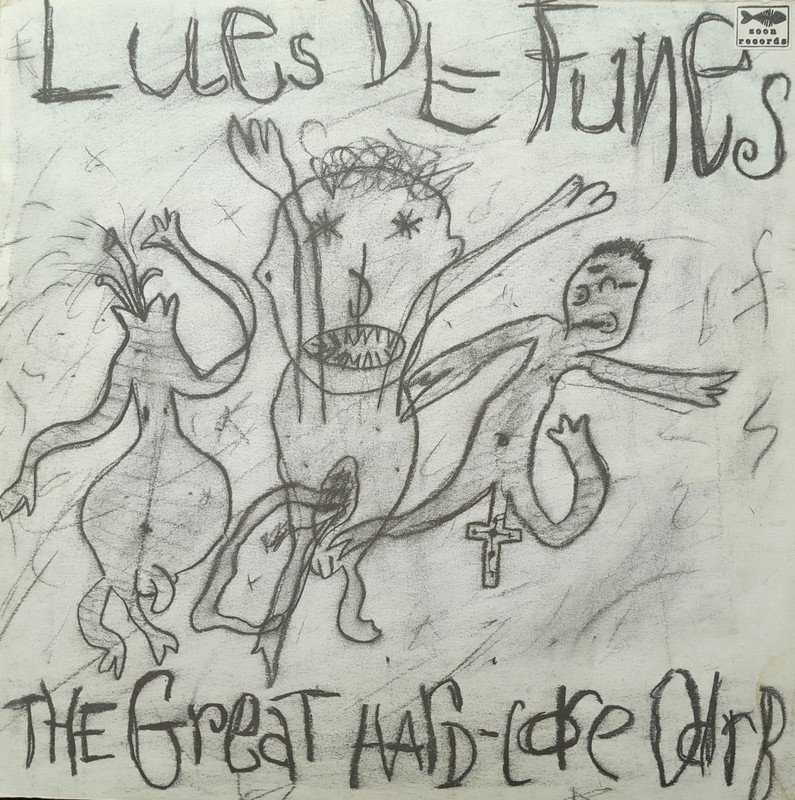 Lues De Funes
soon
records
THE Great HARD-COre